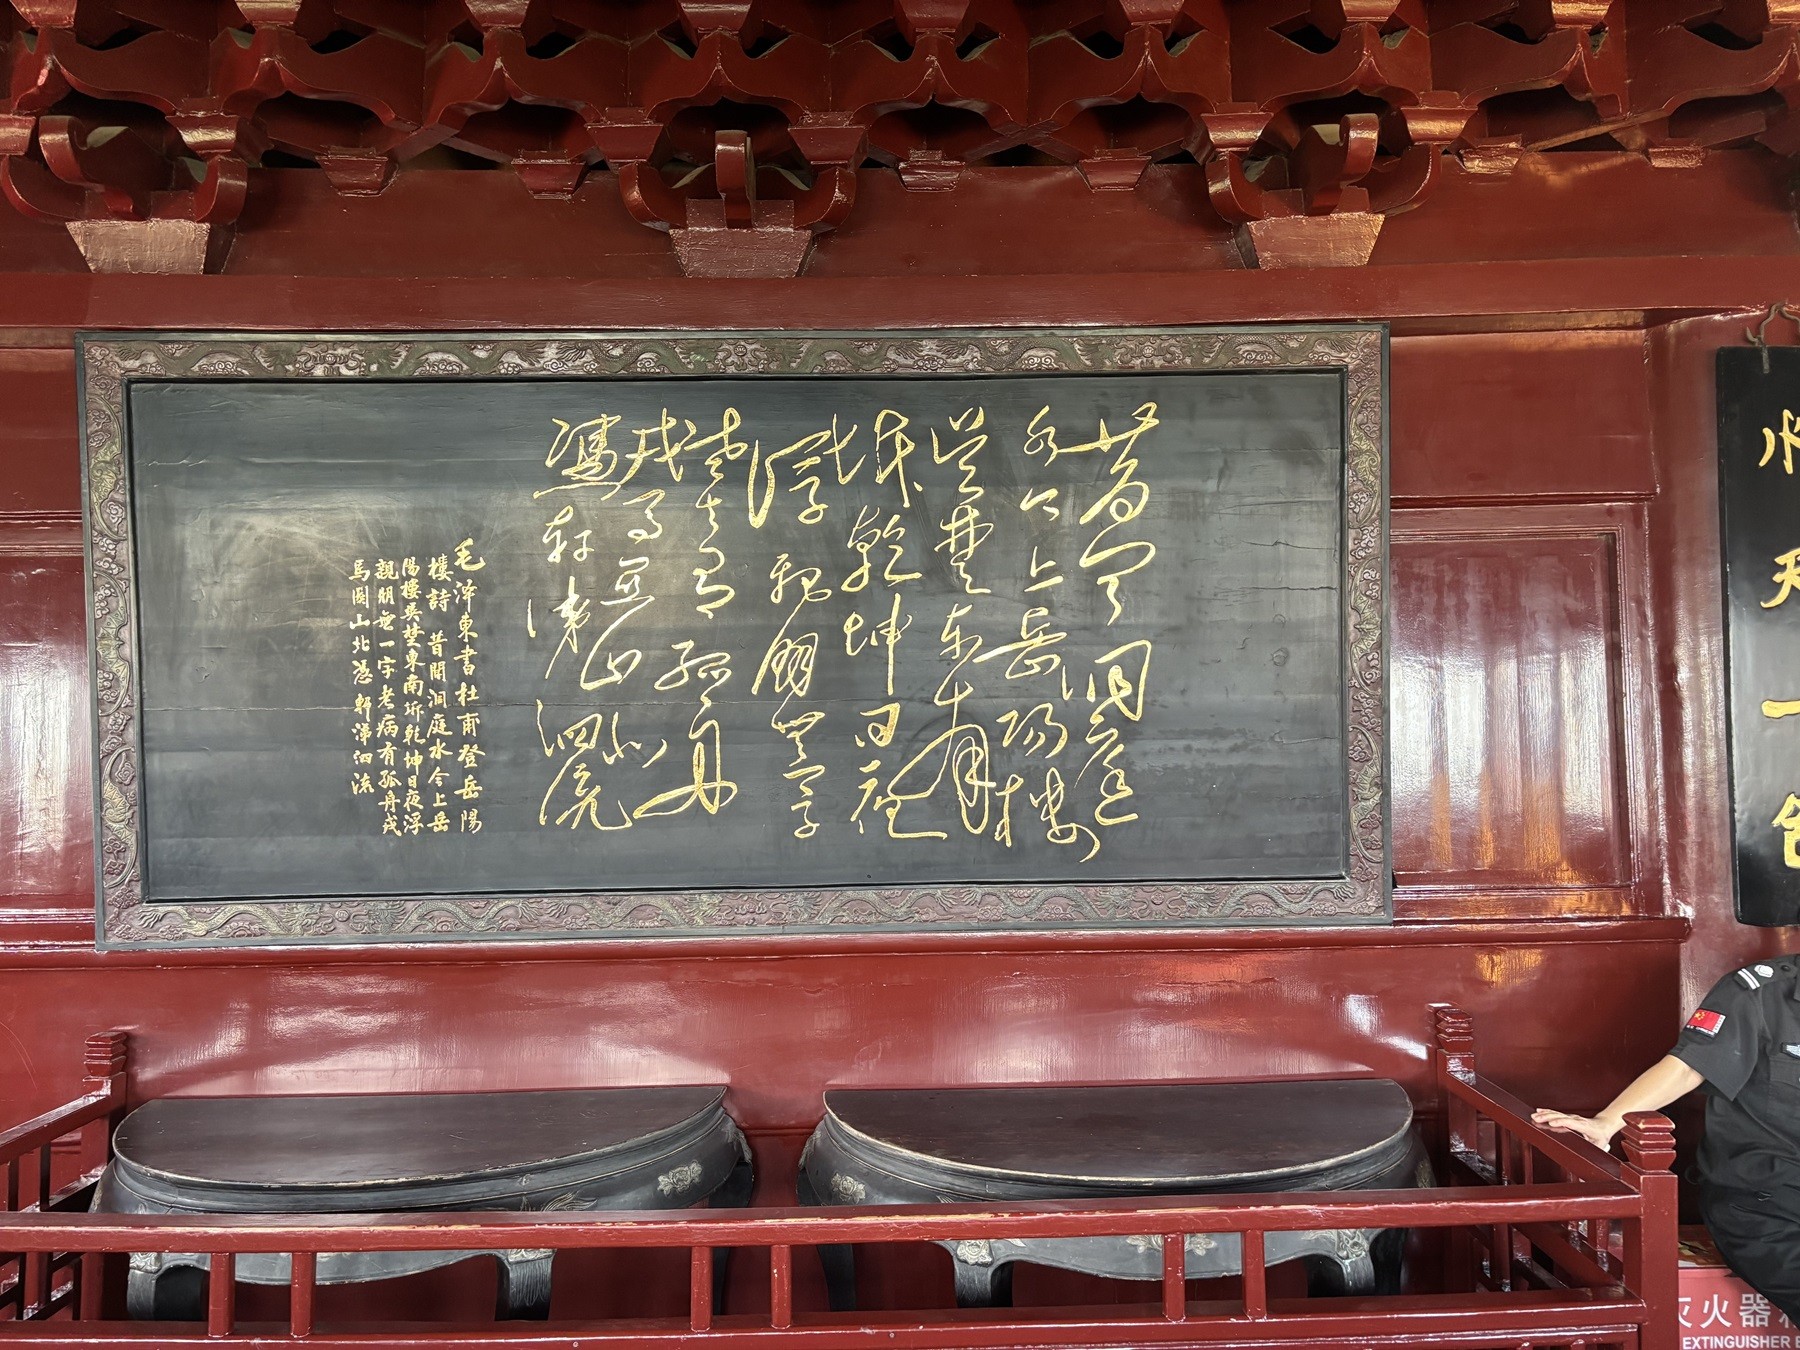 水天一色
昔聞洞庭
水今上岳陽樓
吳楚東南
坼乾坤日夜
浮親朋無一字
老去有孤舟
戎馬關山北
憑軒涕泗流
毛澤東書杜甫登岳陽
樓詩 昔聞洞庭水今上岳
陽樓吳楚東南坼乾坤日夜浮
親朋無一字老病有孤舟戎
馬關山北憑軒涕泗流
灭火器
EXTINGUISHER